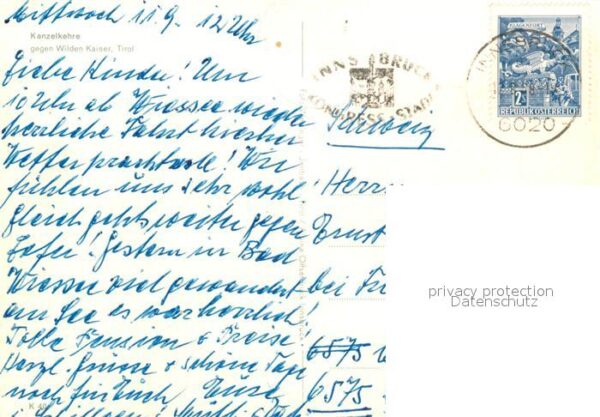 Mittwoch 11.9. 12 Uhr
Kanzelkehre
gegen Wilden Kaiser, Tirol
Liebe Kinder! Um
10 Uhr ab Wiessee wieder
herrliche Fahrt hierher
Wetter prachtvoll! Wir
fühlen uns sehr wohl!
Gleich gehts weiter gegen
Lofer! Gestern in Bad
Wiessee viel gewandert
am See es war herrlich!
Tolle Pension + Preise!
Herzl. Grüsse + schöne Tage
noch für Euch Eure
K 40
INNSBRUCK
KONGRESS-STADT
KLAGENFURT
2S
REPUBLIK ÖSTERREICH
6020
Herr
Ernst
bei
6575
6575
privacy protection
Datenschutz